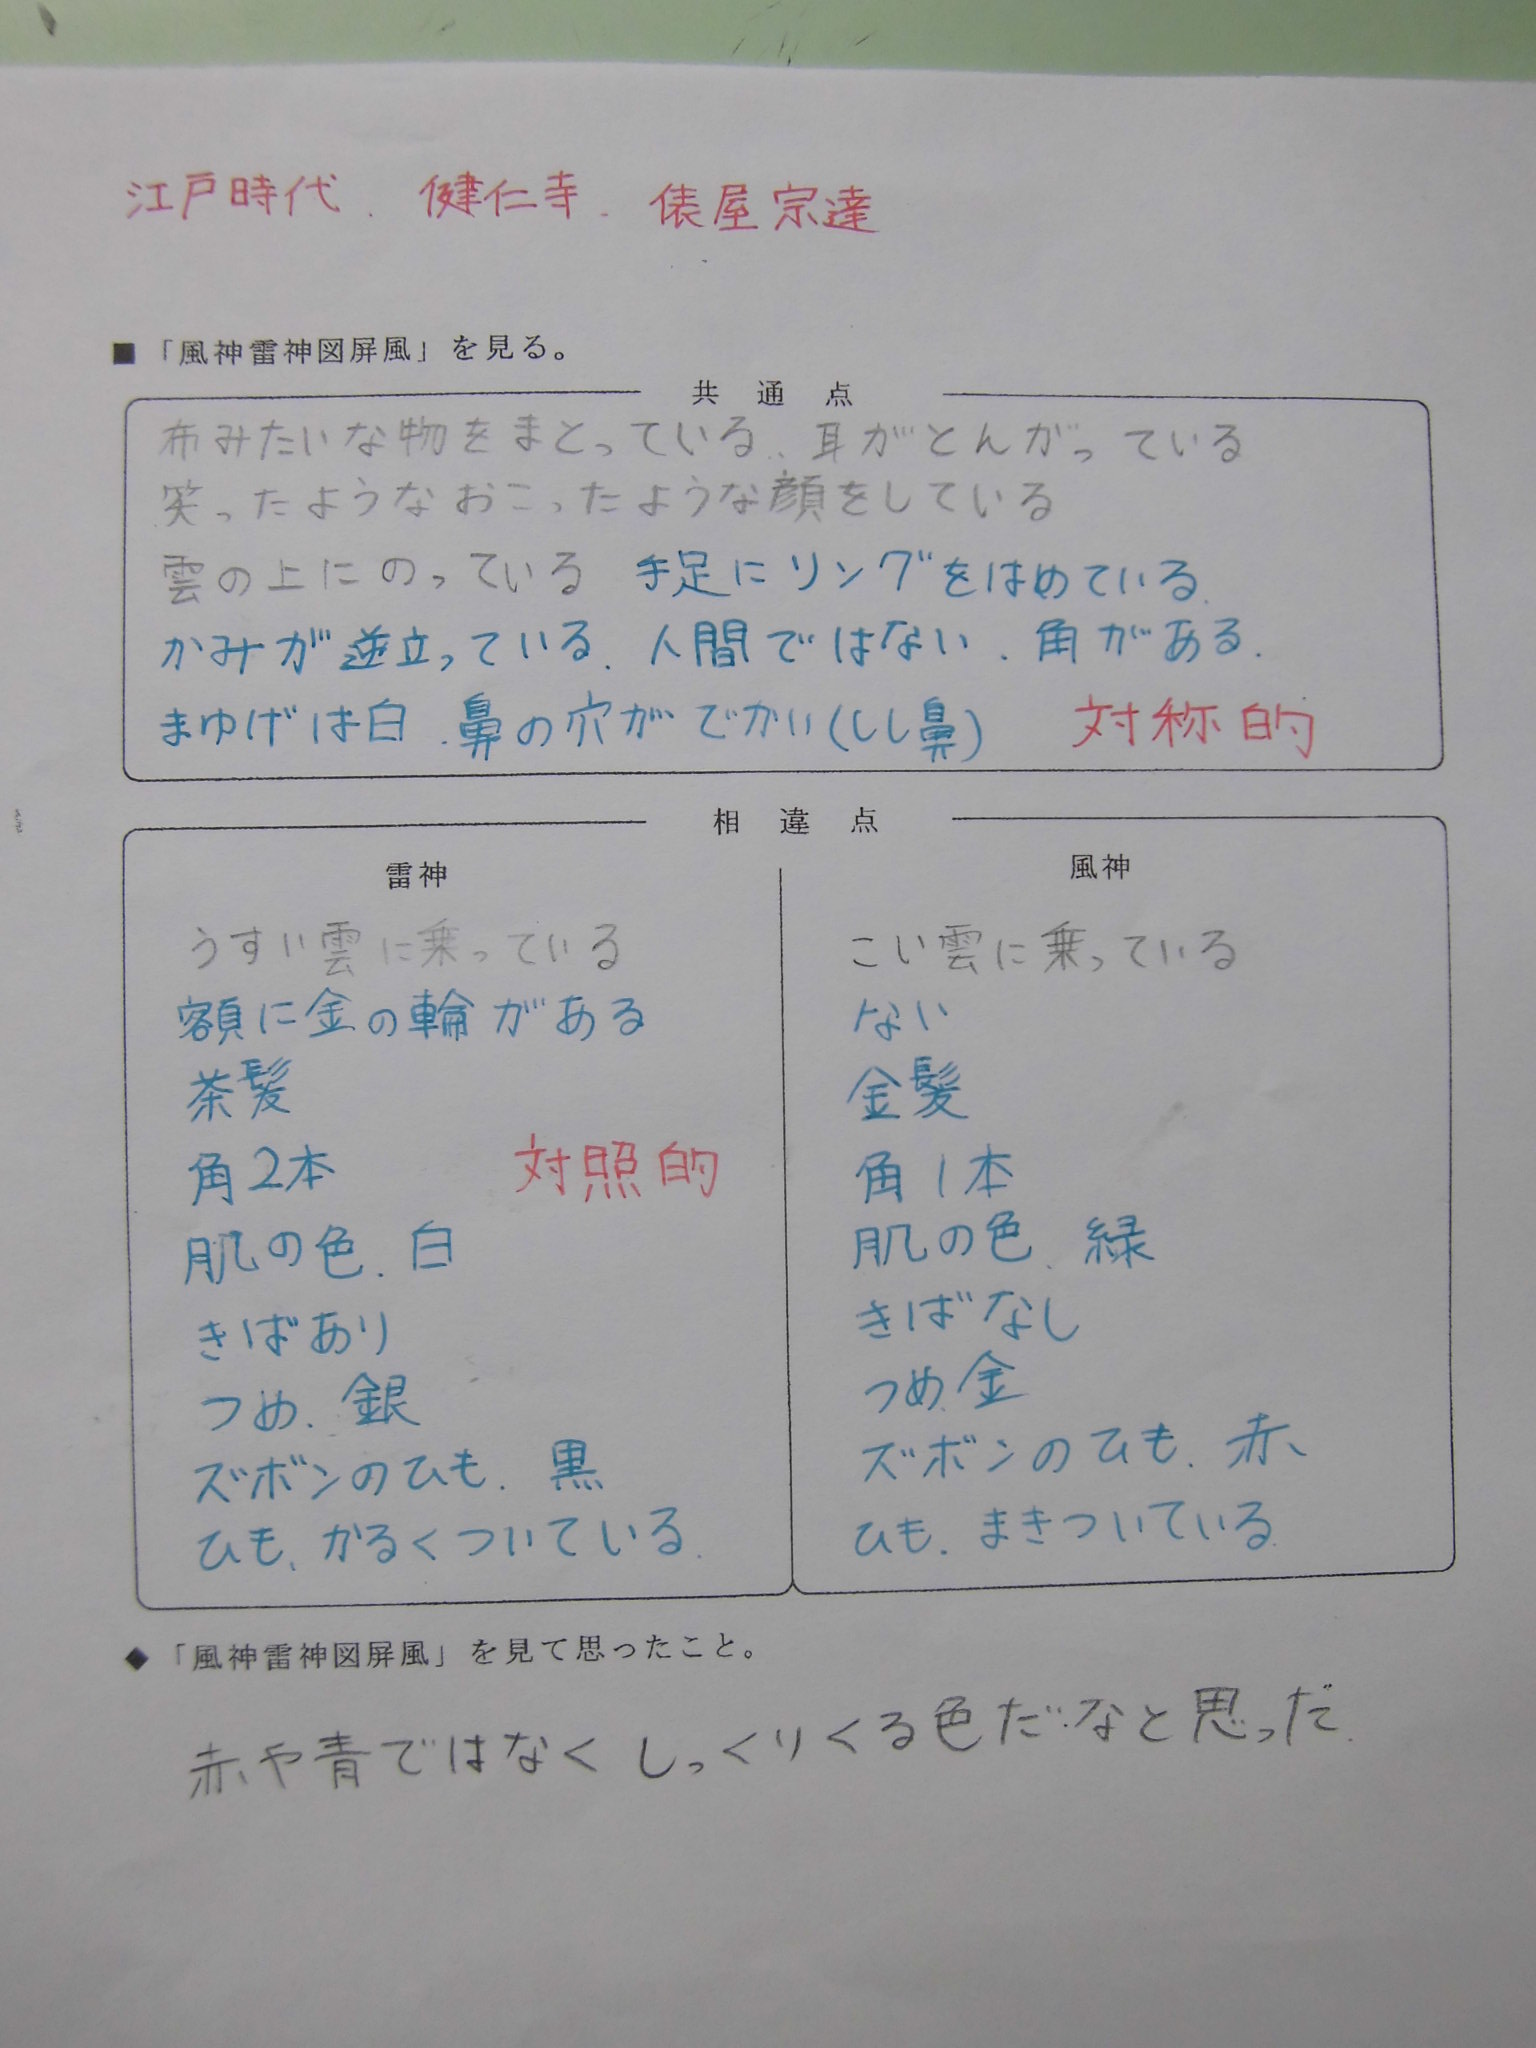 江戸時代．健仁寺．俵屋宗達
■「風神雷神図屏風」を見る。
共通点
布みたいな物をまとっている．耳がとんがっている
笑ったようなおこったような顔をしている
雲の上にのっている 手足にリングをはめている．
かみが逆立っている．人間ではない．角がある．
まゆげは白．鼻の穴がでかい(しし鼻) 対称的
相違点
雷神
うすい雲に乗っている
額に金の輪がある
茶髪
角2本 対照的
肌の色．白
きばあり
つめ．銀
ズボンのひも．黒
ひも．かるくついている．
風神
こい雲に乗っている
ない
金髪
角1本
肌の色．緑
きばなし
つめ．金
ズボンのひも．赤
ひも．まきついている．
◆「風神雷神図屏風」を見て思ったこと。
赤や青ではなくしっくりくる色だなと思った．